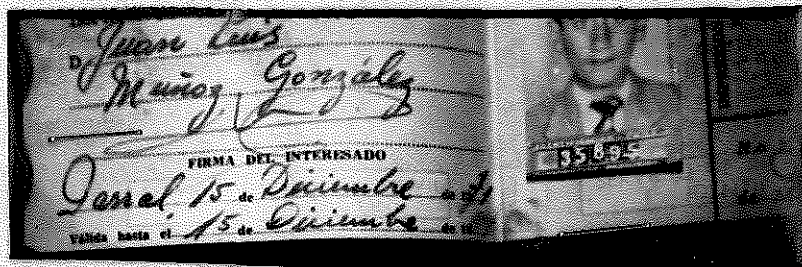 D. Juan Luis
Muñoz González
FIRMA DEL INTERESADO
15 de Diciembre de
Válida hasta el 15 de Diciembre de 1